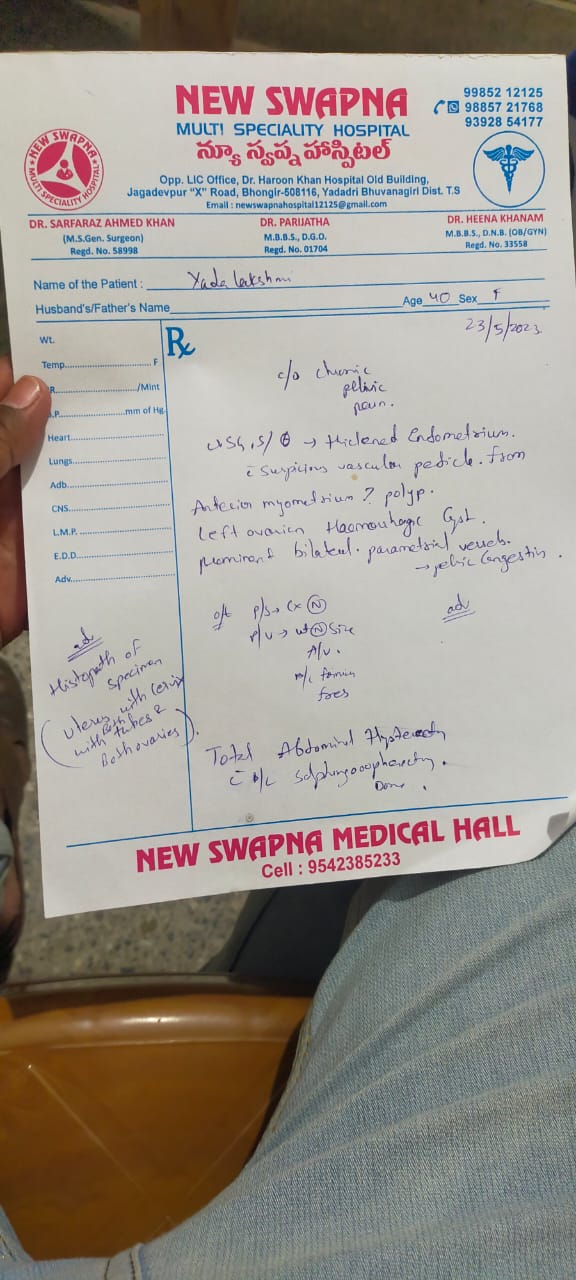 NEW SWAPNA
MULTI SPECIALITY HOSPITAL
న్యూ స్వప్న హాస్పిటల్
99852 12125
98857 21768
93928 54177
NEW SWAPNA
MULTI SPECIALITY HOSPITAL
Opp. LIC Office, Dr. Haroon Khan Hospital Old Building,
Jagadevpur "X" Road, Bhongir-508116, Yadadri Bhuvanagiri Dist. T.S
Email : newswapnahospital12125@gmail.com
DR. SARFARAZ AHMED KHAN
(M.S.Gen. Surgeon)
Regd. No. 58998
DR. PARIJATHA
M.B.B.S., D.G.O.
Regd. No. 01704
DR. HEENA KHANAM
M.B.B.S., D.N.B. (OB/GYN)
Regd. No. 33558
Name of the Patient : Yada lakshmi
Husband's/Father's Name Age 40 Sex F
23/5/2023
Wt.
Temp. F
R. /Mint
.P. mm of Hg.
Heart
Lungs
Adb
CNS
L.M.P.
E.D.D.
Adv.
Rx
c/o chronic
pelvic
pain.
USG. → thickened Endometrium.
c̄ suspicious vascular pedicle. from
Anterior myometrium ? polyp.
Left ovarian Haemorrhagic Cyst.
prominent bilateral. parametrial vessels.
→ pelvic Congestion.
o/e P/S → Cx Ⓝ
P/V → ut Ⓝ Size
A/V.
B/L fornices
free
adv
adv
Histopath of
specimen
(Uterus with Cervix
with Both tubes &
Both ovaries).
Total Abdominal Hysterectomy
c̄ B/L Salphingooopherectomy.
Done.
NEW SWAPNA MEDICAL HALL
Cell : 9542385233